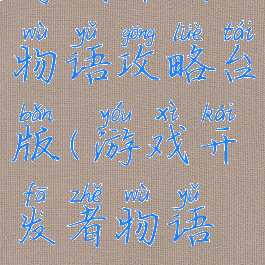 wù yǔ gōng lüè tái
物语攻略台
bǎn yóu xì kāi
版(游戏开
fā zhě wù yǔ
发者物语